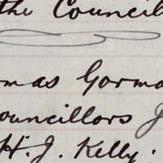 the Council
mas Gorma
ouncillors J
H. J. Kelly.